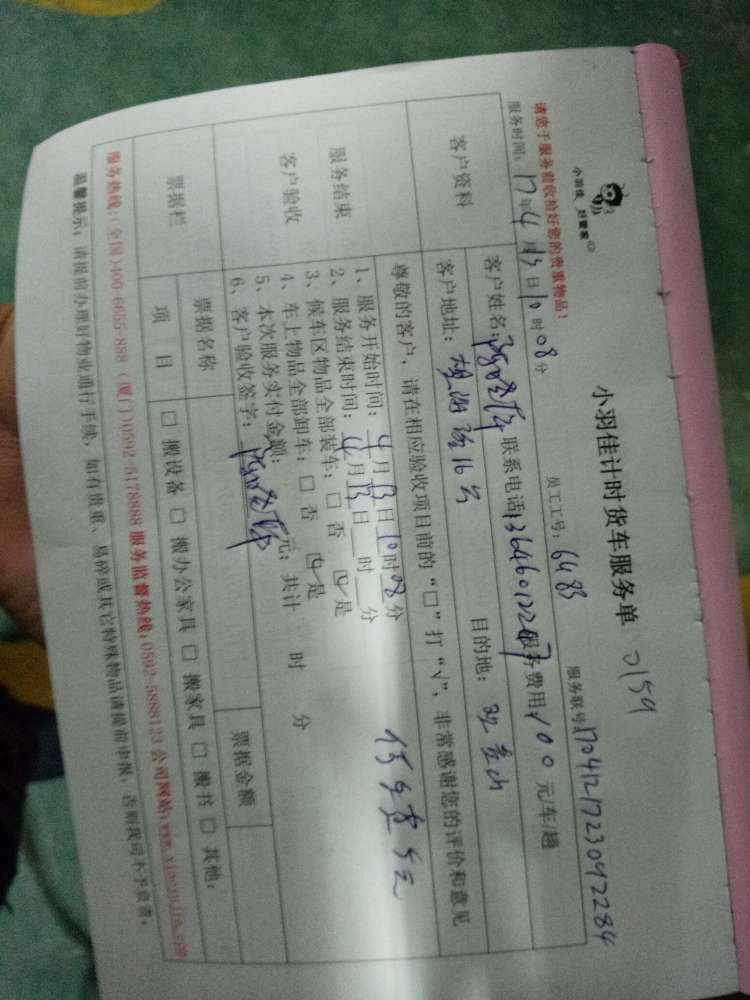 小羽佳 好管家
小羽佳计时货车服务单 2159
请您于服务前收捡好您的贵重物品!
服务时间:17年4月13日10时08分 员工工号:6483 服务联号:170412172304 2284
客户资料
客户姓名: 联系电话 服务费用:100元/车/趟
客户地址: 目的地:
尊敬的客户,请在相应验收项目前的“□”打“√”,非常感谢您的评价和意见
服务结束
客户验收
1、服务开始时间:4月13日10时08分
2、服务结束时间:4月13日 时 分
3、候车区物品全部装车:□ 否 ☑ 是
4、车上物品全部卸车:□ 否 ☑ 是
5、本次服务实付金额: 元; 共计 时 分
6、客户验收签字:
票据栏
票据名称 票据金额
项 目 □ 搬设备 □ 搬办公家具 □ 搬家具 □ 搬书 □ 其他:
服务热线:(全国)400-6655-888 (厦门)0592-5178888 服务监督热线:0592-5888123 公司网站:www.xiaoyujia.com
温馨提示:请提前办理好物业通行手续,如有贵重、易碎或其它特殊物品请提前申报,否则我司不予负责。